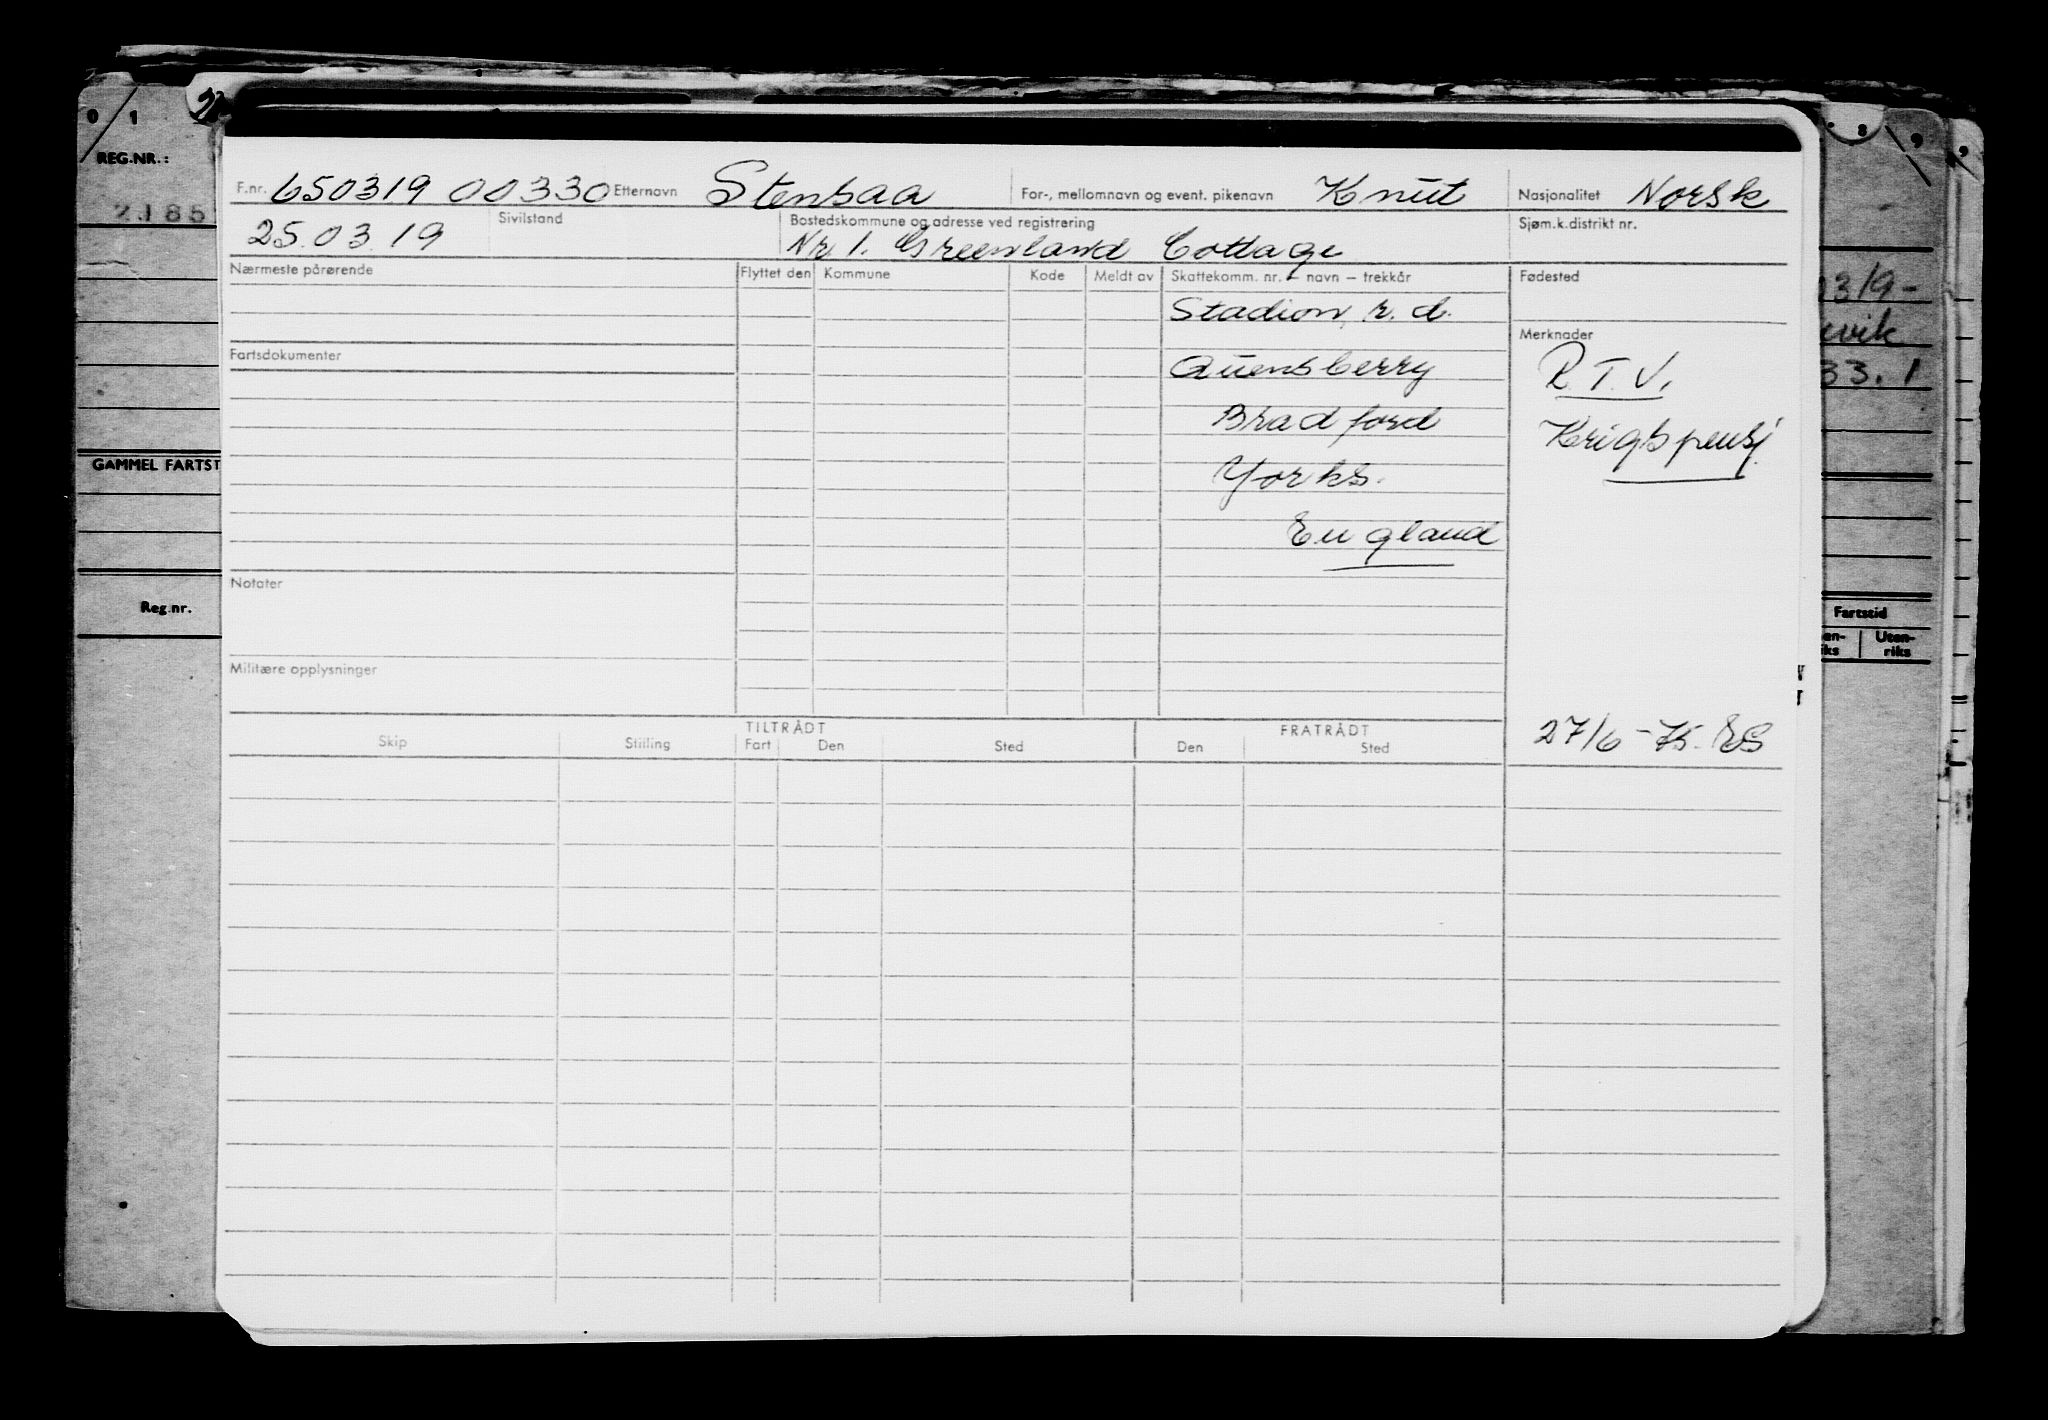 0 / 1
REG.NR.:
GAMMEL FARTST
Reg.nr.
F.nr. 650319 00330 Etternavn Stensaa For-, mellomnavn og event. pikenavn Knut Nasjonalitet Norsk
25.03.19 Sivilstand Bostedskommune og adresse ved registrering Sjøm.k.distrikt nr.
Nr 1. Greenland Cottage
Nærmeste pårørende Flyttet den Kommune Kode Meldt av Skattekomm. nr. – navn – trekkår Fødested
Stadion, r. d.
Merknader
Fartsdokumenter Quensberry R.T.V.
Bradford Krigspensj.
Yorks.
England
Notater
Militære opplysninger
TILTRÅDT FRATRÅDT
Skip Stilling Fart Den Sted Den Sted
27/6-75. ES
8 9
0319-
vik
33.1
Fartstid
en- Uten-
iks riks